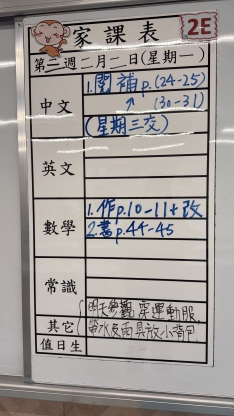 家課表 2E
第二週二月二日(星期一)
中文
1.閱補p.(24-25)
(30-31)
(星期三交)
英文
數學
1.作p.10-11+改
2.書p.44-45
常識
其它
明天參觀穿運動服,
帶水及雨具放小背包
值日生